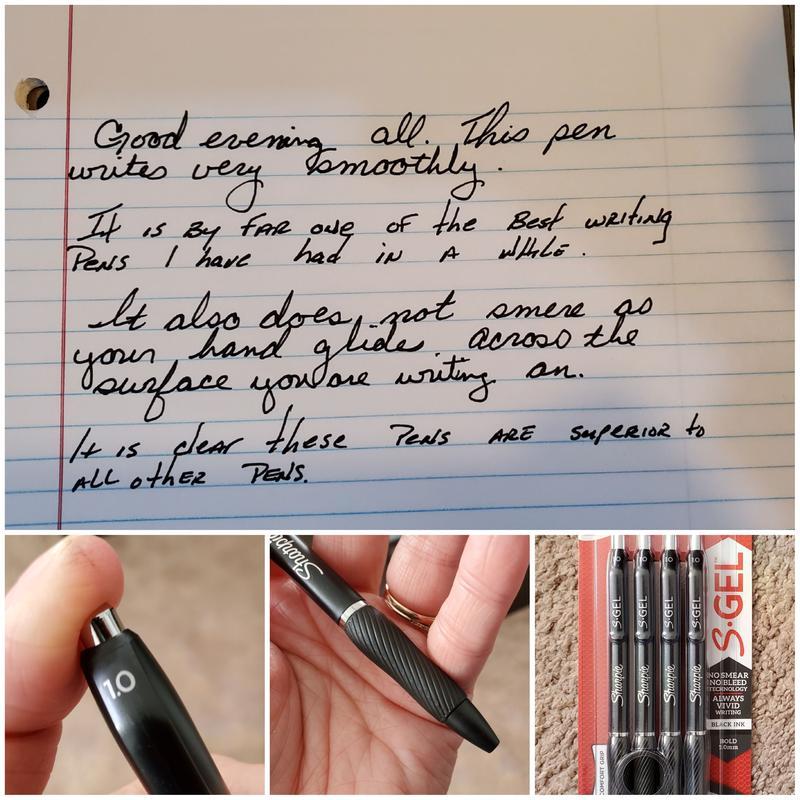 Good evening all. This pen
writes very smoothly.
It is By FAR one of the Best writing
Pens I have had in A while.
It also does not smere as
your hand glide across the
surface you are writing on.
It is clear these Pens ARE superior to
ALL other Pens.
1.0
Sharpie
S·GEL
S·GEL
S·GEL
S·GEL
Sharpie
Sharpie
Sharpie
Sharpie
S·GEL
NO SMEAR
NO BLEED
TECHNOLOGY
ALWAYS
VIVID
WRITING
BLACK INK
BOLD
1.0mm
COMFORT GRIP